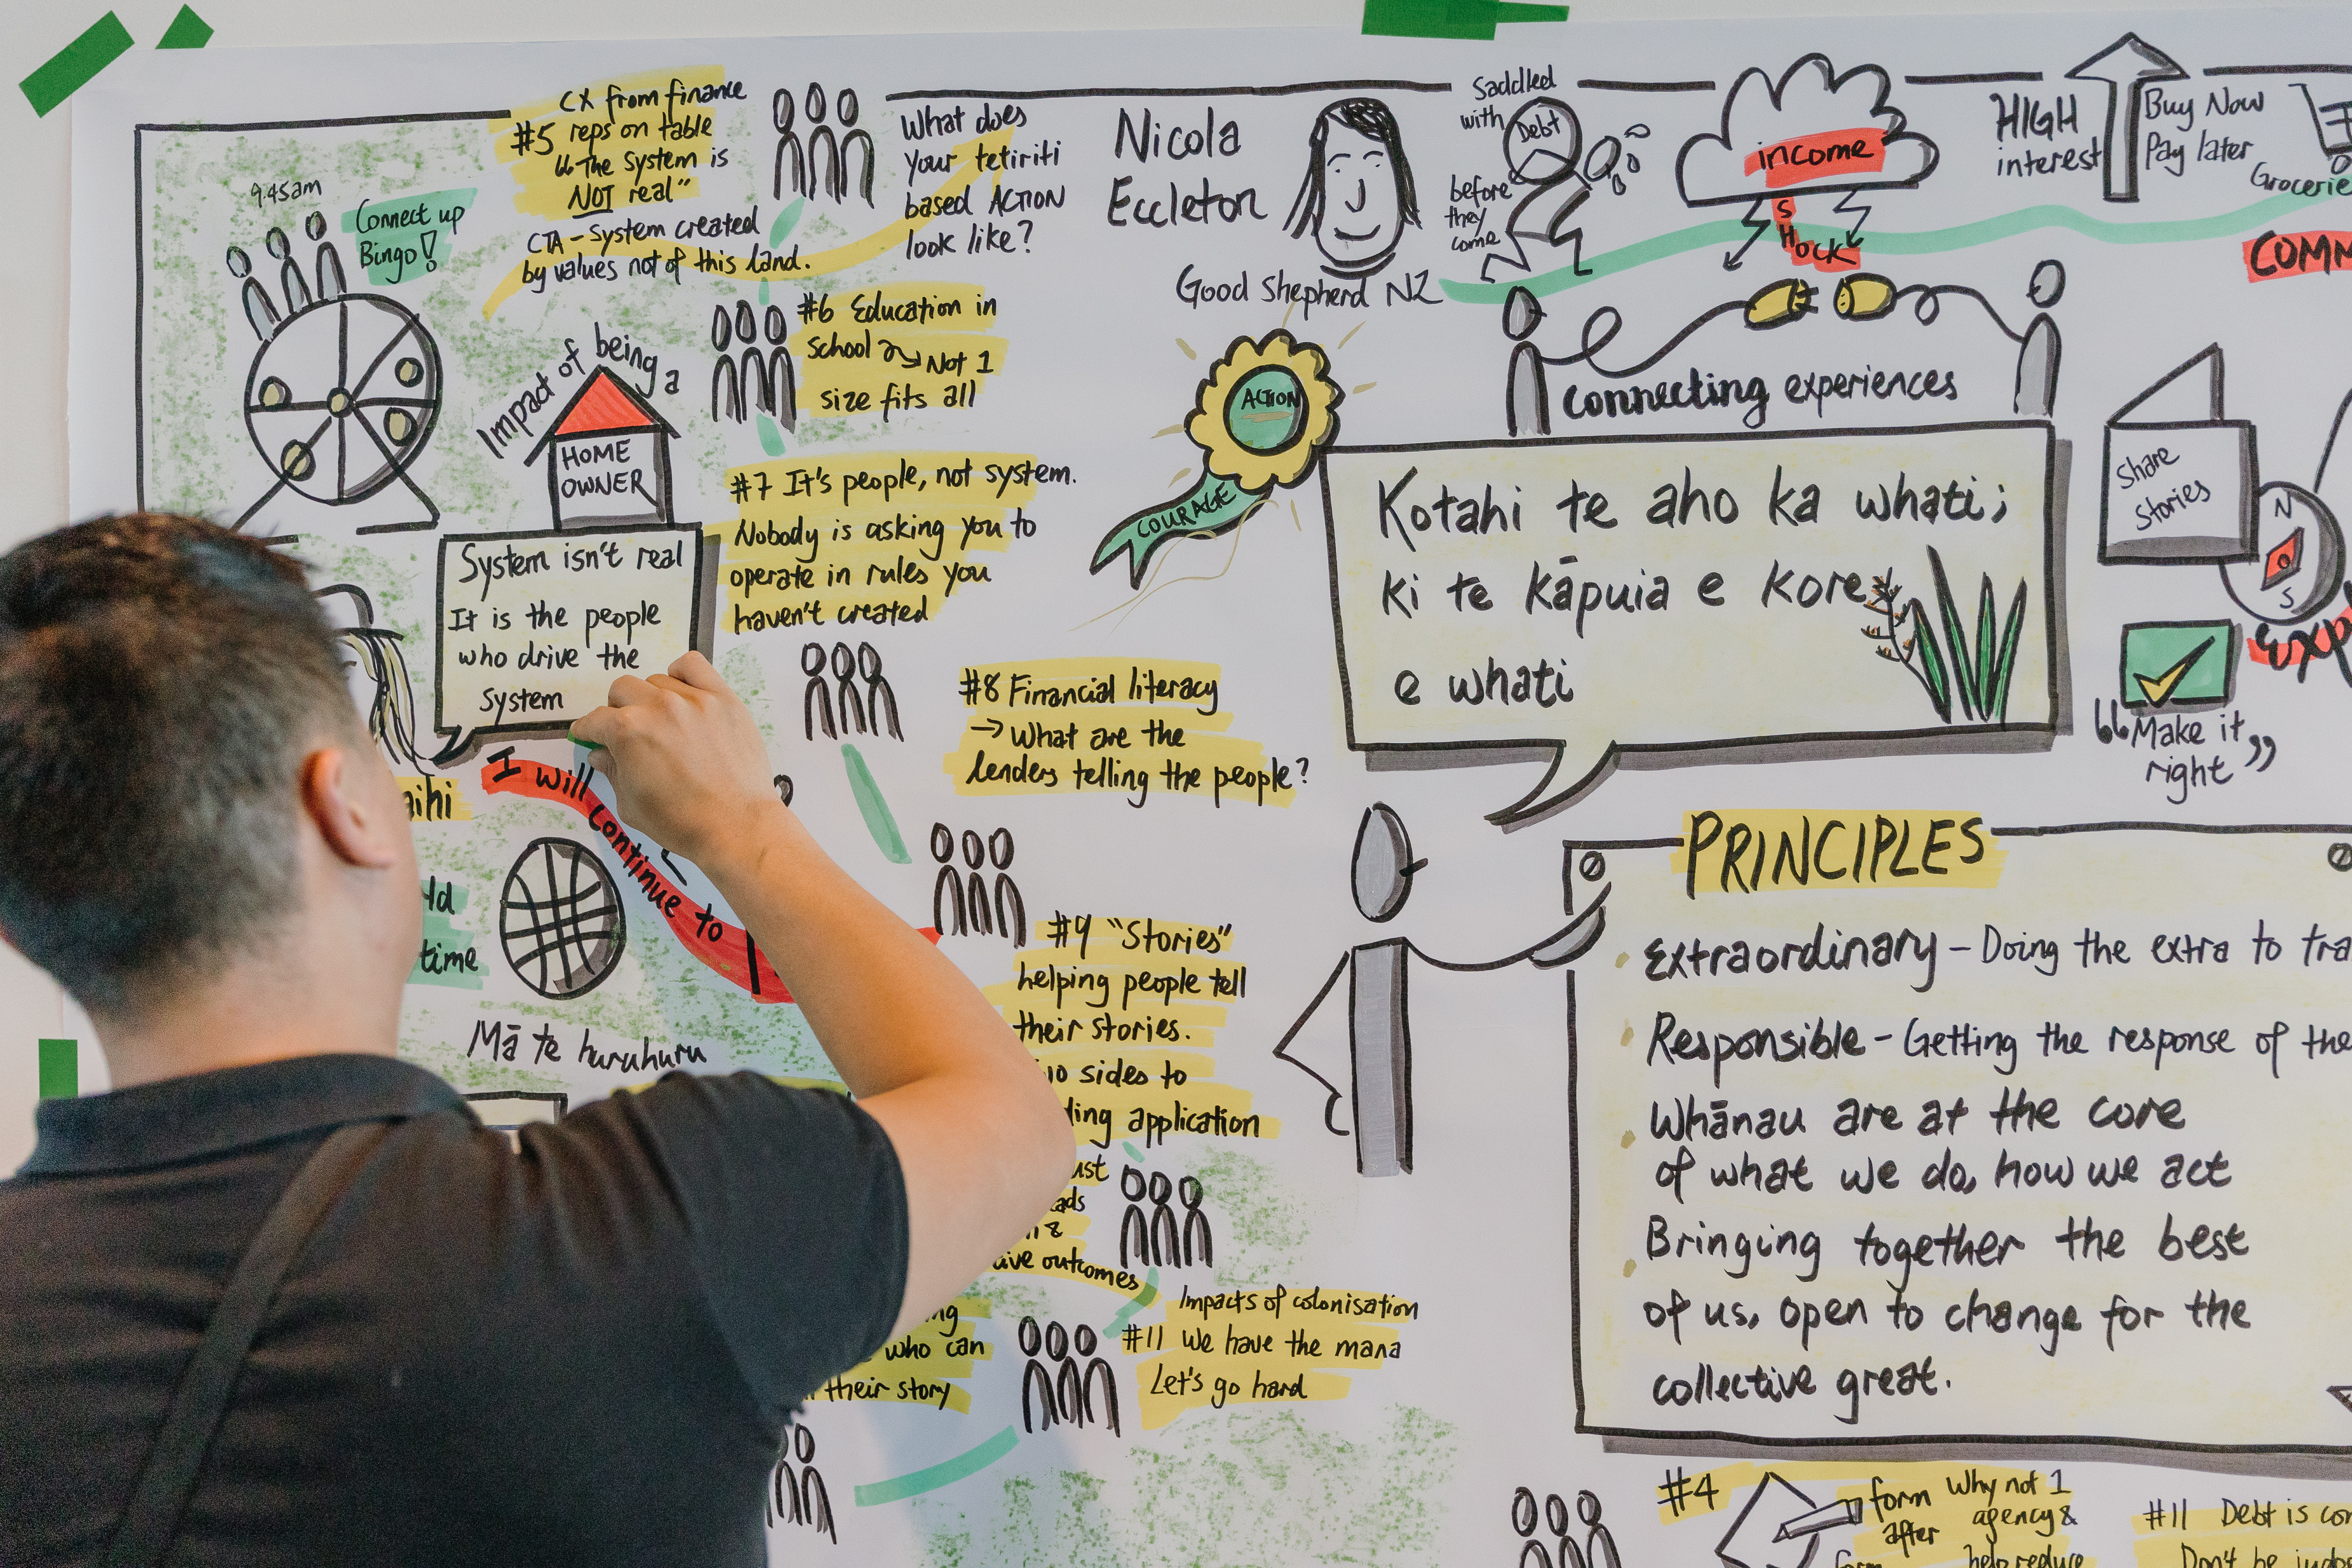 9.45am
Connect up
Bingo!
CX from finance
#5 reps on table
"The system is
NOT real"
CTA - System created
by values not of this land.
What does
your tetiriti
based ACTION
look like?
#6 Education in
school → Not 1
size fits all
Impact of being a
HOME
OWNER
System isn't real
It is the people
who drive the
system
#7 It's people, not system.
Nobody is asking you to
operate in rules you
haven't created
#8 Financial literacy
→ What are the
lenders telling the people?
I will continue to
time
Mā te huruhuru
#9 "Stories"
helping people tell
their stories.
sides to
application
outcomes
who can
their story
Impacts of colonisation
#11 we have the mana
Let's go hard
Nicola
Eccleton
Good Shepherd NZ
Saddled
with Debt
before
they
come
income
SHOCK
HIGH
interest
Buy Now
Pay later
ACTION
COURAGE
connecting experiences
Kotahi te aho ka whati;
ki te kāpuia e kore
e whati
Share
Stories
N
S
"Make it
right"
PRINCIPLES
Extraordinary - Doing the extra to
Responsible - Getting the response of the
Whānau are at the core
of what we do, how we act
Bringing together the best
of us, open to change for the
collective great.
#4
form
after
form
Why not 1
agency &
help reduce
#11 Debt is
Don't be